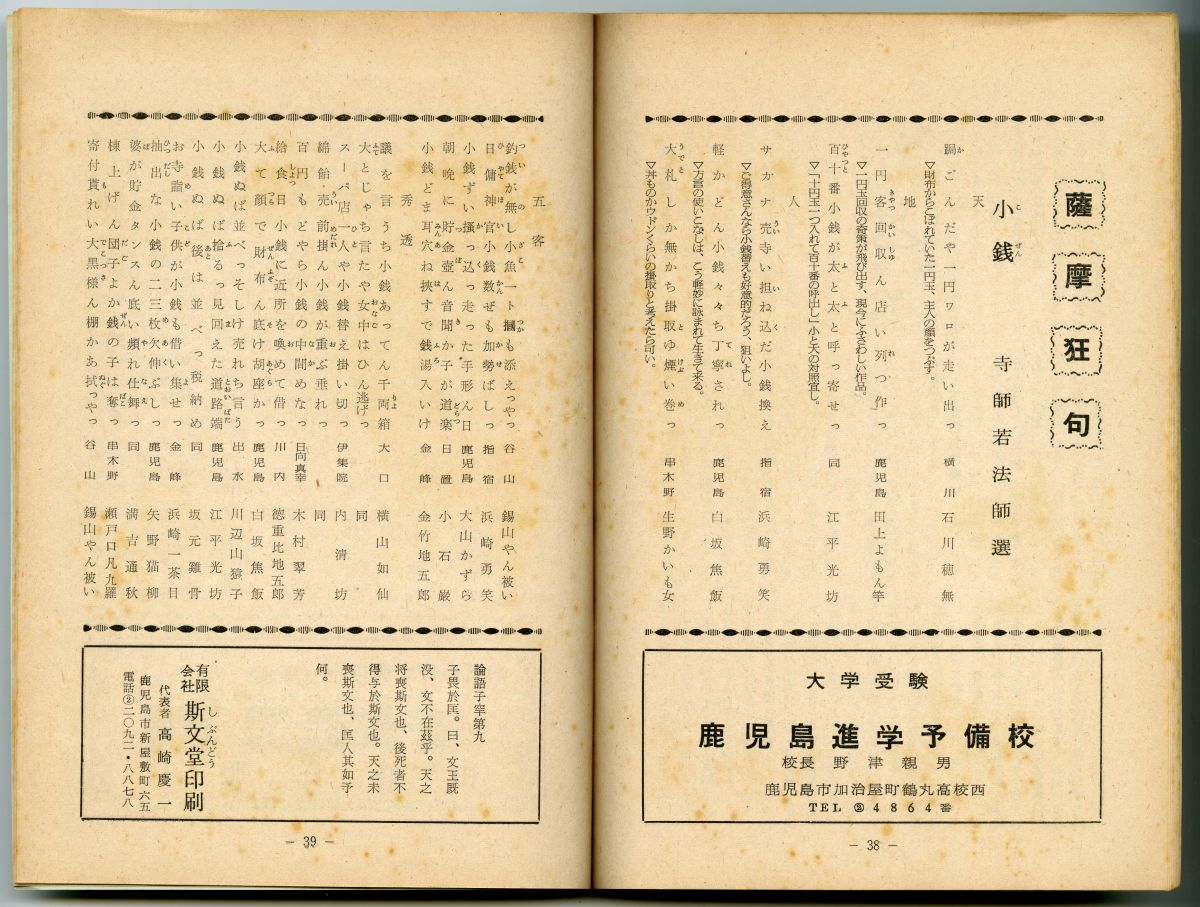 薩摩狂句
小銭 寺師若法師選
天
踊ごんだや一円ワロが走い出っ 横川 石川穂無
▽財布からこぼれていた一円玉、主人の顔をつぶす。
地
一円客回収ん店い列つ作っ 鹿児島 田上よもん竿
▽一円玉回収の奇策が飛び出す、現今にふさわしい作品。
百十番小銭が太と太と呼っ寄せっ 同 江平光坊
▽十円玉一つ入れて百十番の呼出し、小と大の対照宜し。
人
サカナ売寺い担ね込だ小銭換え 指宿 浜崎勇笑
▽ご得意さんなら小銭替えも好意的だろう、狙いよし。
軽かどん小銭々々ち丁寧されっ 鹿児島 白坂焦飯
▽方言の使いこなしは、こう軽妙に詠まれて生きて来る。
大札しか無かち掛取ゆ煙い巻っ 串木野 生野かいも女
▽丼ものかウドンくらいの掛取りと考えたら可い。
大学受験
鹿児島進学予備校
校長 野津親男
鹿児島市加治屋町鶴丸高校西
TEL ②4864番
― 38 ―
五客
釣銭が無し小魚一ト摑も添えっやっ 谷山 錫山やん被い
日傭神官小銭数ぜも加勢ばしっ 指宿 浜崎勇笑
小銭ずい搔っ込っ走った手形ん日 鹿児島 大山かずら
朝晩に貯金壺ん音聞か子が道楽 日置 小石巌
小銭どま耳穴ね挟すで銭湯入いけ 金峰 金竹地五郎
秀逸
議を言うち小銭あってん千両箱 大口 横山如仙
大とじゃち言たや女中はひん逃げっ 同 同
スーパ店一人や小銭替え掛い切っ 伊集院 内清坊
綿飴売前掛ん小銭が重ぶ垂れっ 同 同
百円もどやら小銭の中間めなっ 日向真幸 木村翠芳
給食日小銭に近所を喚めて借っ 川内 徳重比地五郎
大て顔で財布ん底け胡座かっ 鹿児島 白坂焦飯
小銭ぬば並べっそしけ売れち言う 出水 川辺山猿子
小銭ぬば拾るっ見回えた道路端 鹿児島 江平光坊
小銭ぬば後は並べっ税納め 同 坂元雞骨
お寺詣い子供が小銭も借い集せっ 金峰 浜崎一茶目
抽出な小銭の二三枚欠伸ぶしっ 鹿児島 矢野猫柳
婆が貯金タンスん底い頻れ仕舞っ 同 満吉通秋
棟上げん団子よか銭の子は奪っ 串木野 瀬戸口凡九羅
寄付貰れい大黒様ん棚かあ拭っやっ 谷山 錫山やん被い
論語子罕第九
子畏於匡。曰、文王既
没、文不在茲乎。天之
将喪斯文也、後死者不
得与於斯文也。天之未
喪斯文也、匡人其如予
何。
有限会社 斯文堂印刷
しぶんどう
代表者 高崎慶一
鹿児島市新屋敷町六五
電話②二〇九二・八八七八
― 39 ―